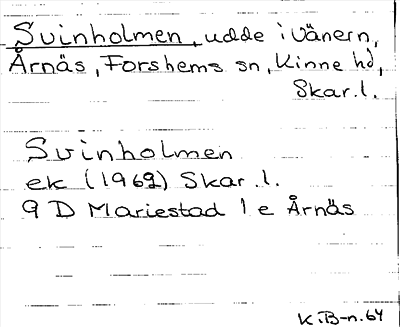 Svinholmen, udde i Vänern,
Årnäs, Forshems sn, Kinne hd,
Skar.l.
Svinholmen
ek (1962) Skar.l.
9 D Mariestad 1 e Årnäs
K.B-n.64